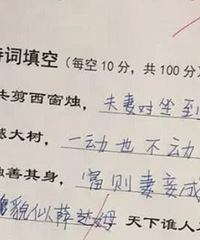 诗词填空（每空10分，共100分）
共剪西窗烛，夫妻对坐到
撼大树，一动也不动
独善其身，富则妻妾成
貌似薛达姆 天下谁人